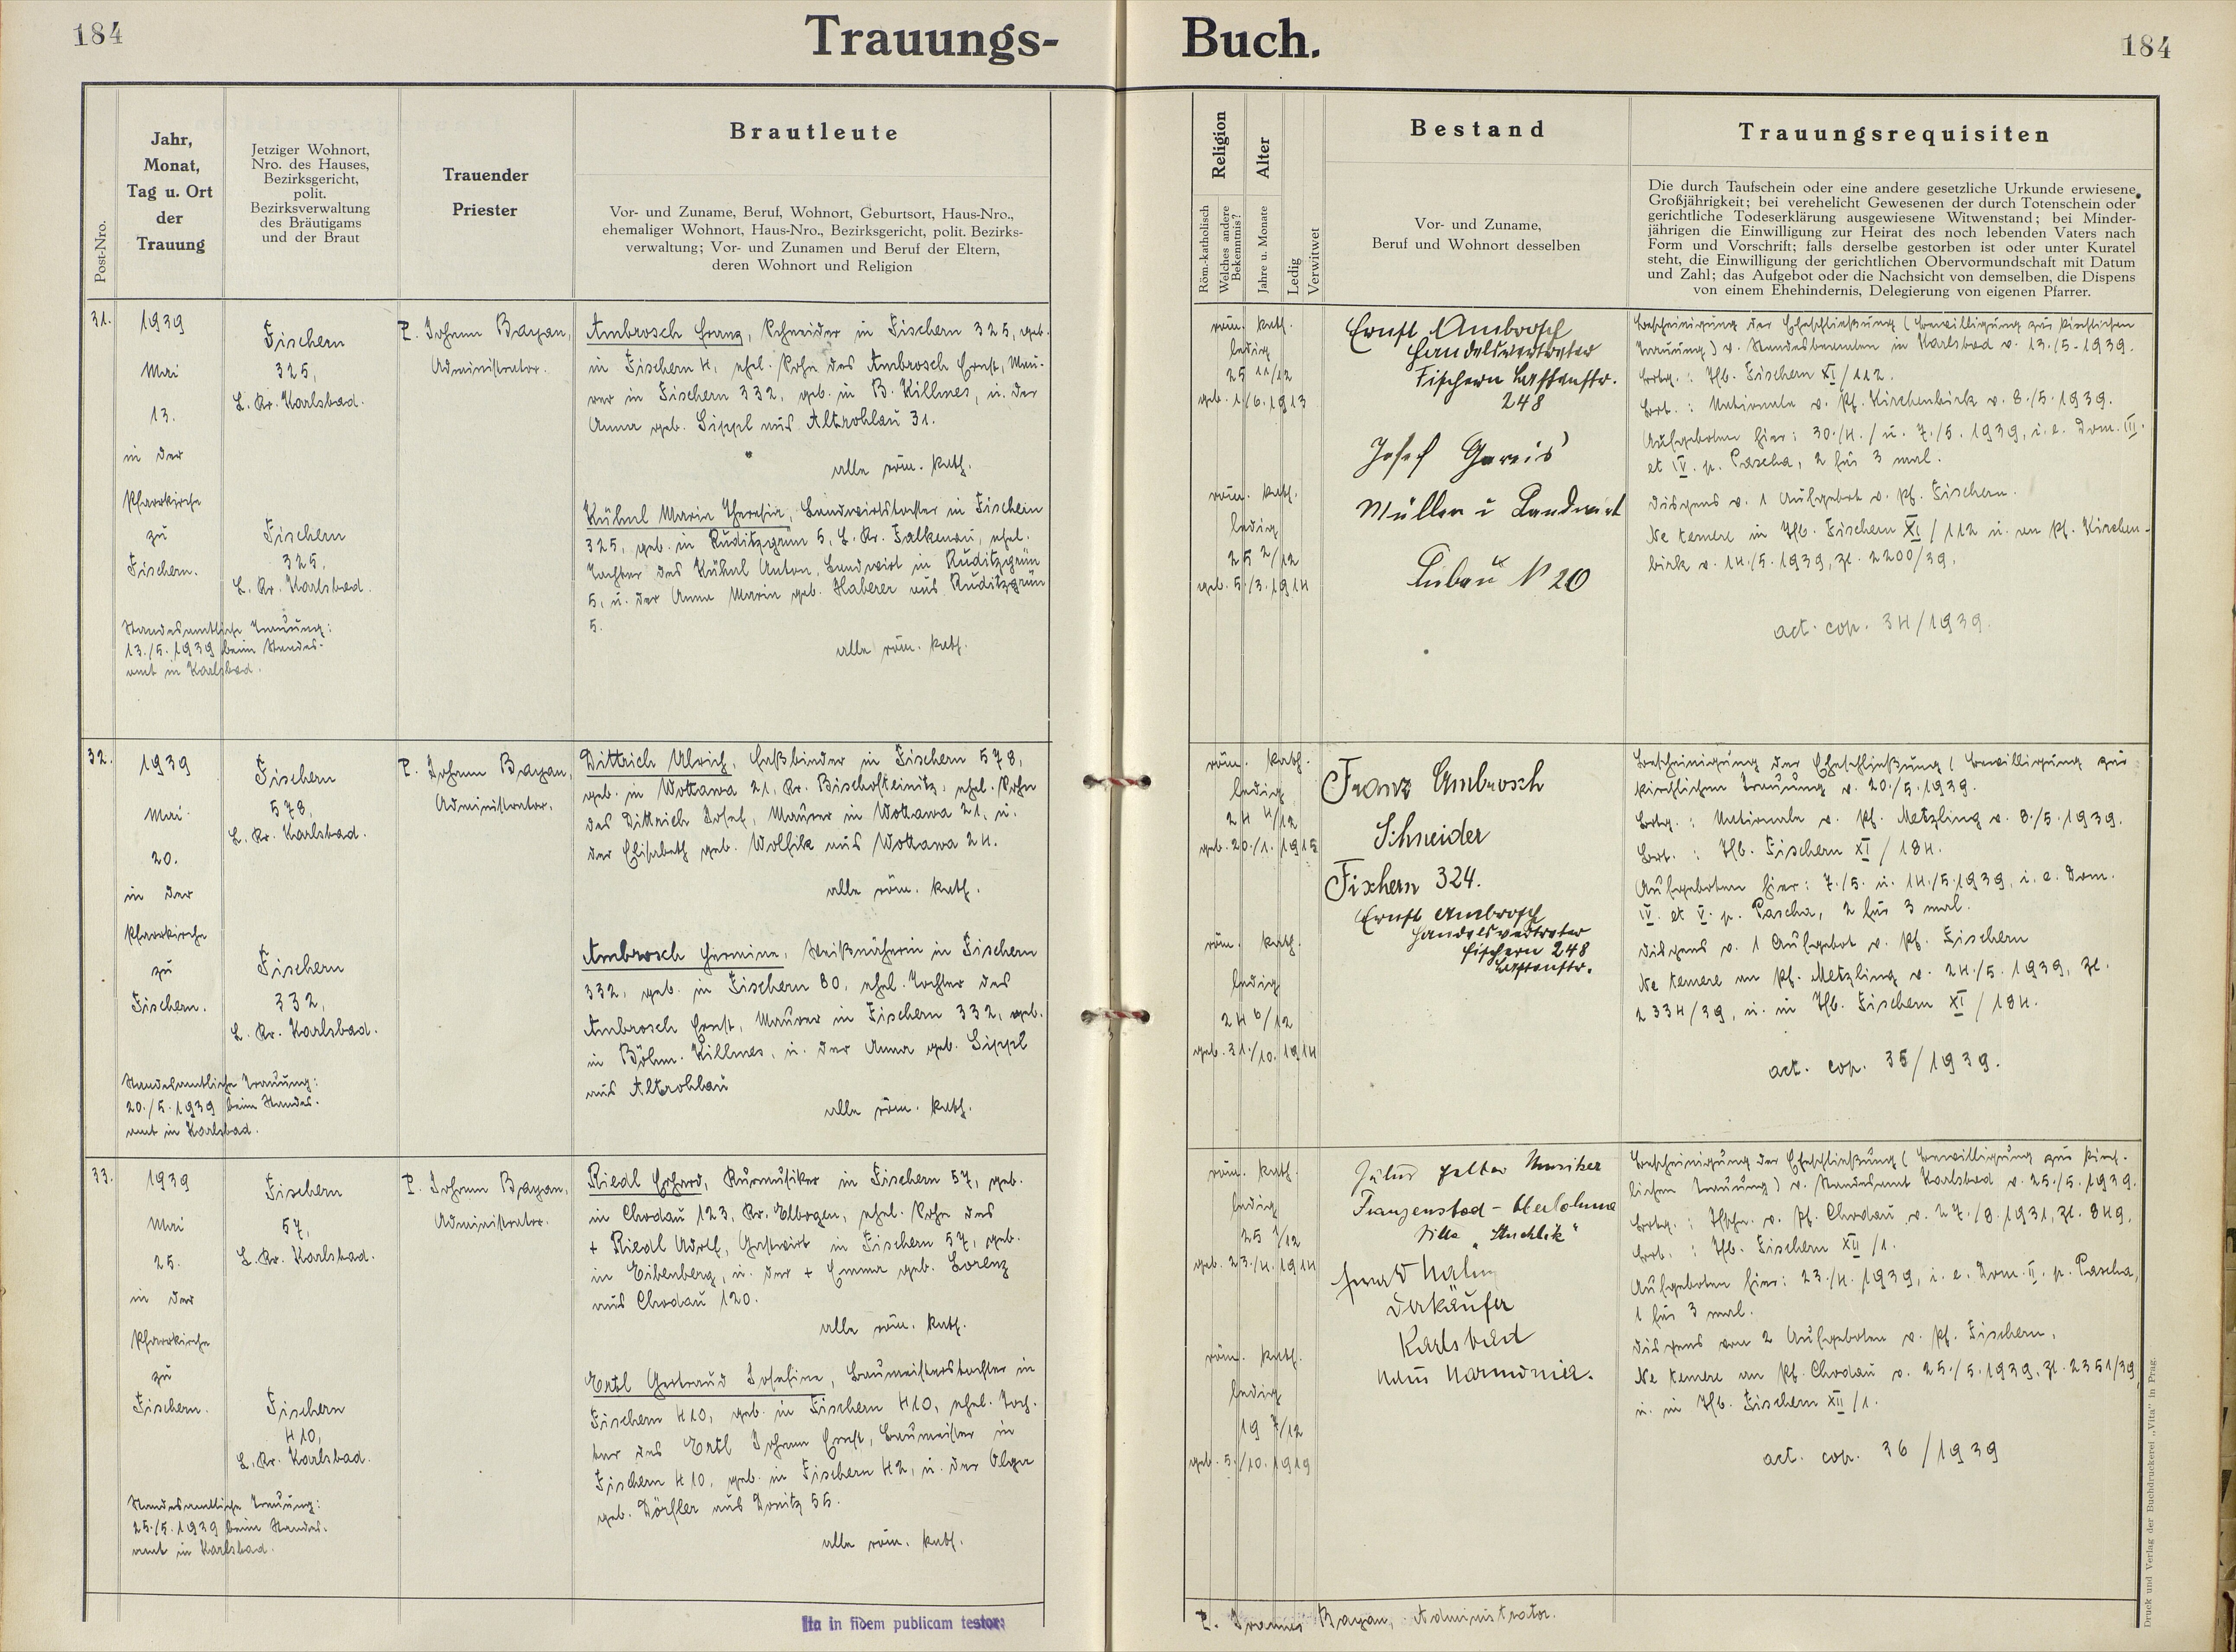 184
Trauungs-
Buch.
184
Post-Nro.
Jahr,
Monat,
Tag u. Ort
der
Trauung
Jetziger Wohnort,
Nro. des Hauses,
Bezirksgericht,
polit.
Bezirksverwaltung
des Bräutigams
und der Braut
Trauender
Priester
Brautleute
Vor- und Zuname, Beruf, Wohnort, Geburtsort, Haus-Nro.,
ehemaliger Wohnort, Haus-Nro., Bezirksgericht, polit. Bezirks-
verwaltung; Vor- und Zunamen und Beruf der Eltern,
deren Wohnort und Religion
Religion
Röm.-katholisch
Welches andere
Bekenntnis?
Alter
Jahre u. Monate
Ledig
Verwitwet
Bestand
Vor- und Zuname,
Beruf und Wohnort desselben
Trauungsrequisiten
Die durch Taufschein oder eine andere gesetzliche Urkunde erwiesene
Großjährigkeit; bei verehelicht Gewesenen der durch Totenschein oder
gerichtliche Todeserklärung ausgewiesene Witwenstand; bei Minder-
jährigen die Einwilligung zur Heirat des noch lebenden Vaters nach
Form und Vorschrift; falls derselbe gestorben ist oder unter Kuratel
steht, die Einwilligung der gerichtlichen Obervormundschaft mit Datum
und Zahl; das Aufgebot oder die Nachsicht von demselben, die Dispens
von einem Ehehindernis, Delegierung von eigenen Pfarrer.
31.
1939
Mai
13.
in der
Pfarrkirche
zu
Fischern.
Standesamtliche Trauung:
13./5.1939 beim Standes-
amt in Karlsbad.
Fischern
325,
L. Kr. Karlsbad.
Fischern
325,
L. Kr. Karlsbad.
P. Johann Bayan,
Administrator.
Ambrosch Franz, Schneider in Fischern 325, geb.
in Fischern 4, ehel. Sohn des Ambrosch Ernst, Mau-
rer in Fischern 332, geb. in B. Killmes, u. der
Anna geb. Lippl aus Altrohlau 31.
alle röm. kath.
Kühnl Maria Theresia, Landwirtstochter in Fischern
325, geb. in Ruditzgrün 5, L. Kr. Falkenau, ehel.
Tochter des Kühnl Anton, Landwirt in Ruditzgrün
5, u. der Anna Maria geb. Haberer aus Ruditzgrün
5.
alle röm. kath.
röm. kath.
ledig
25 11/12
geb. 1./6.1913
röm. kath.
ledig
25 2/12
geb. 5./3.1914
Ernst Ambrosch
Handelsvertreter
Fischern
248
Josef Gareis
Müller u Landwirt
Lubau N 20
Bescheinigung der Eheschließung (Bewilligung zur kirchlichen
Trauung) v. Standesbeamten in Karlsbad v. 13./5.1939.
Brtg.: Tfb. Fischern XI/112.
Brt.: Matrik v. Pf. Kirchenbirk v. 8./5.1939.
Aufgeboten hier: 30./4. / u. 7./5. 1939, i. e. Dom. III.
et IV. p. Pascha, 2 für 3 mal.
Dispens v. 1 Aufgebot v. Pf. Fischern.
Ne temere in Tfb. Fischern XI/112 u. an Pf. Kirchen-
birk v. 14./5.1939, Zl. 2200/39.
act. cop. 34/1939.
32.
1939
Mai
20.
in der
Pfarrkirche
zu
Fischern.
Standesamtliche Trauung:
20./5.1939 beim Standes-
amt in Karlsbad.
Fischern
578,
L. Kr. Karlsbad.
Fischern
332,
L. Kr. Karlsbad.
P. Johann Bayan,
Administrator.
Dittrich Ulrich, Faßbinder in Fischern 578,
geb. in Wottawa 21, Kr. Bischofteinitz, ehel. Sohn
des Dittrich Josef, Maurer in Wottawa 21, u.
der Elisabeth geb. Wolfik aus Wottawa 24.
alle röm. kath.
Ambrosch Hermine, Weißnäherin in Fischern
332, geb. in Fischern 80, ehel. Tochter des
Ambrosch Ernst, Maurer in Fischern 332, geb.
in Böhm. Killmes, u. der Anna geb. Lippl
aus Altrohlau
alle röm. kath.
röm. kath.
ledig
24 4/12
geb. 20./1.1915
röm. kath.
ledig
24 6/12
geb. 31./10.1914
Franz Ambrosch
Schneider
Fischern 324.
Ernst Ambrosch
Handelsvertreter
Fischern 248
Bescheinigung der Eheschließung (Bewilligung zur
kirchlichen Trauung v. 20./5.1939.
Brtg.: v. Pf. Metzling v. 8./5.1939.
Brt.: Tfb. Fischern XI/184.
Aufgeboten hier: 7./5. u. 14./5.1939, i. e. Dom.
IV. et V. p. Pascha, 2 für 3 mal.
Dispens v. 1 Aufgebot v. Pf. Fischern
Ne temere an Pf. Metzling v. 24./5. 1939, Zl.
2334/39, u. in Tfb. Fischern XI/184.
act. cop. 35/1939.
33.
1939
Mai
25.
in der
Pfarrkirche
zu
Fischern.
Standesamtliche Trauung:
25./5.1939 beim Standes-
amt in Karlsbad.
Fischern
57,
L. Kr. Karlsbad.
Fischern
410,
L. Kr. Karlsbad.
P. Johann Bayan,
Administrator.
Riedl Erhard, Kurmusiker in Fischern 57, geb.
in Chodau 123, Kr. Elbogen, ehel. Sohn des
+ Riedl Adolf, Gastwirt in Fischern 57, geb.
in Eibenberg, u. der + Emma geb. Lorenz
aus Chodau 120.
alle röm. kath.
Ertl Gertraud Josefine, Baumeisterstochter in
Fischern 410, geb. in Fischern 410, ehel. Toch-
ter des Ertl Johann Ernst, Baumeister in
Fischern 410, geb. in Fischern 42, u. der Olga
geb. Dörfler aus Donitz 55.
alle röm. kath.
röm. kath.
ledig
25 1/12
geb. 23./4.1914
röm. kath.
ledig
19 7/12
geb. 5./10.1919
Musiker
Franzensbad
Verkäufer
Karlsbad
Haus Harmonie.
Bescheinigung der Eheschließung (Bewilligung zur kirch-
lichen Trauung) v. Standesamt Karlsbad v. 25./5.1939.
Brtg.: Tfsch. v. Pf. Chodau v. 27./8.1931, Zl. 849.
Brt.: Tfb. Fischern XII/1.
Aufgeboten hier: 23./4. 1939, i. e. Dom. II. p. Pascha,
1 für 3 mal.
Dispens von 2 Aufgeboten v. Pf. Fischern.
Ne temere an Pf. Chodau v. 25./5.1939, Zl. 2351/39
u. in Tfb. Fischern XII/1.
act. cop. 36/1939
Ita in fidem publicam testor:
P. Joannes Bayan, Administrator.
Druck und Verlag der Buchdruckerei „Vita" in Prag.